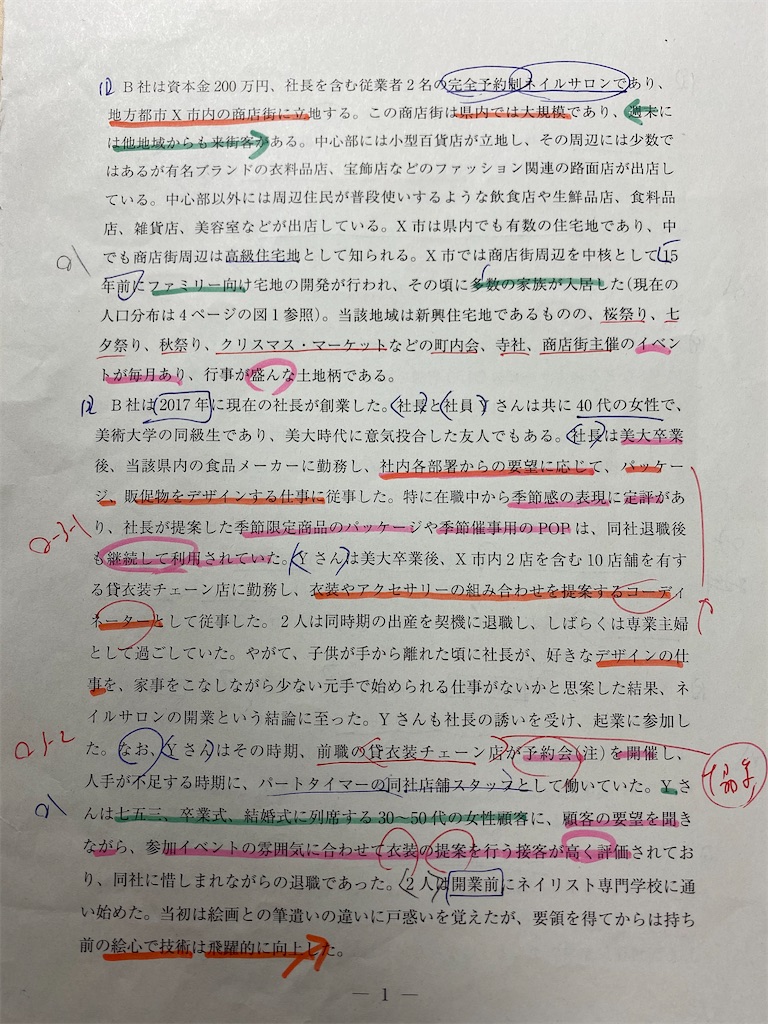 B社は資本金200万円、社長を含む従業者2名の完全予約制ネイルサロンであり、
地方都市X市内の商店街に立地する。この商店街は県内では大規模であり、週末に
は他地域からも来街客がある。中心部には小型百貨店が立地し、その周辺には少数で
はあるが有名ブランドの衣料品店、宝飾店などのファッション関連の路面店が出店し
ている。中心部以外には周辺住民が普段使いするような飲食店や生鮮品店、食料品
店、雑貨店、美容室などが出店している。X市は県内でも有数の住宅地であり、中
でも商店街周辺は高級住宅地として知られる。X市では商店街周辺を中核として15
年前にファミリー向け宅地の開発が行われ、その頃に多数の家族が入居した(現在の
人口分布は4ページの図1参照)。当該地域は新興住宅地であるものの、桜祭り、七
夕祭り、秋祭り、クリスマス・マーケットなどの町内会、寺社、商店街主催のイベン
トが毎月あり、行事が盛んな土地柄である。
B社は2017年に現在の社長が創業した。社長と社員Yさんは共に40代の女性で、
美術大学の同級生であり、美大時代に意気投合した友人でもある。社長は美大卒業
後、当該県内の食品メーカーに勤務し、社内各部署からの要望に応じて、パッケー
ジ、販促物をデザインする仕事に従事した。特に在職中から季節感の表現に定評があ
り、社長が提案した季節限定商品のパッケージや季節催事用のPOPは、同社退職後
も継続して利用されていた。Yさんは美大卒業後、X市内2店を含む10店舗を有す
る貸衣装チェーン店に勤務し、衣装やアクセサリーの組み合わせを提案するコーディ
ネーターとして従事した。2人は同時期の出産を契機に退職し、しばらくは専業主婦
として過ごしていた。やがて、子供が手から離れた頃に社長が、好きなデザインの仕
事を、家事をこなしながら少ない元手で始められる仕事がないかと思案した結果、ネ
イルサロンの開業という結論に至った。Yさんも社長の誘いを受け、起業に参加し
た。なお、Yさんはその時期、前職の貸衣装チェーン店が予約会(注)を開催し、
人手が不足する時期に、パートタイマーの同社店舗スタッフとして働いていた。Yさ
んは七五三、卒業式、結婚式に列席する30〜50代の女性顧客に、顧客の要望を聞き
ながら、参加イベントの雰囲気に合わせて衣装の提案を行う接客が高く評価されてお
り、同社に惜しまれながらの退職であった。2人は開業前にネイリスト専門学校に通
い始めた。当初は絵画との筆遣いの違いに戸惑いを覚えたが、要領を得てからは持ち
前の絵心で技術は飛躍的に向上した。
— 1 —